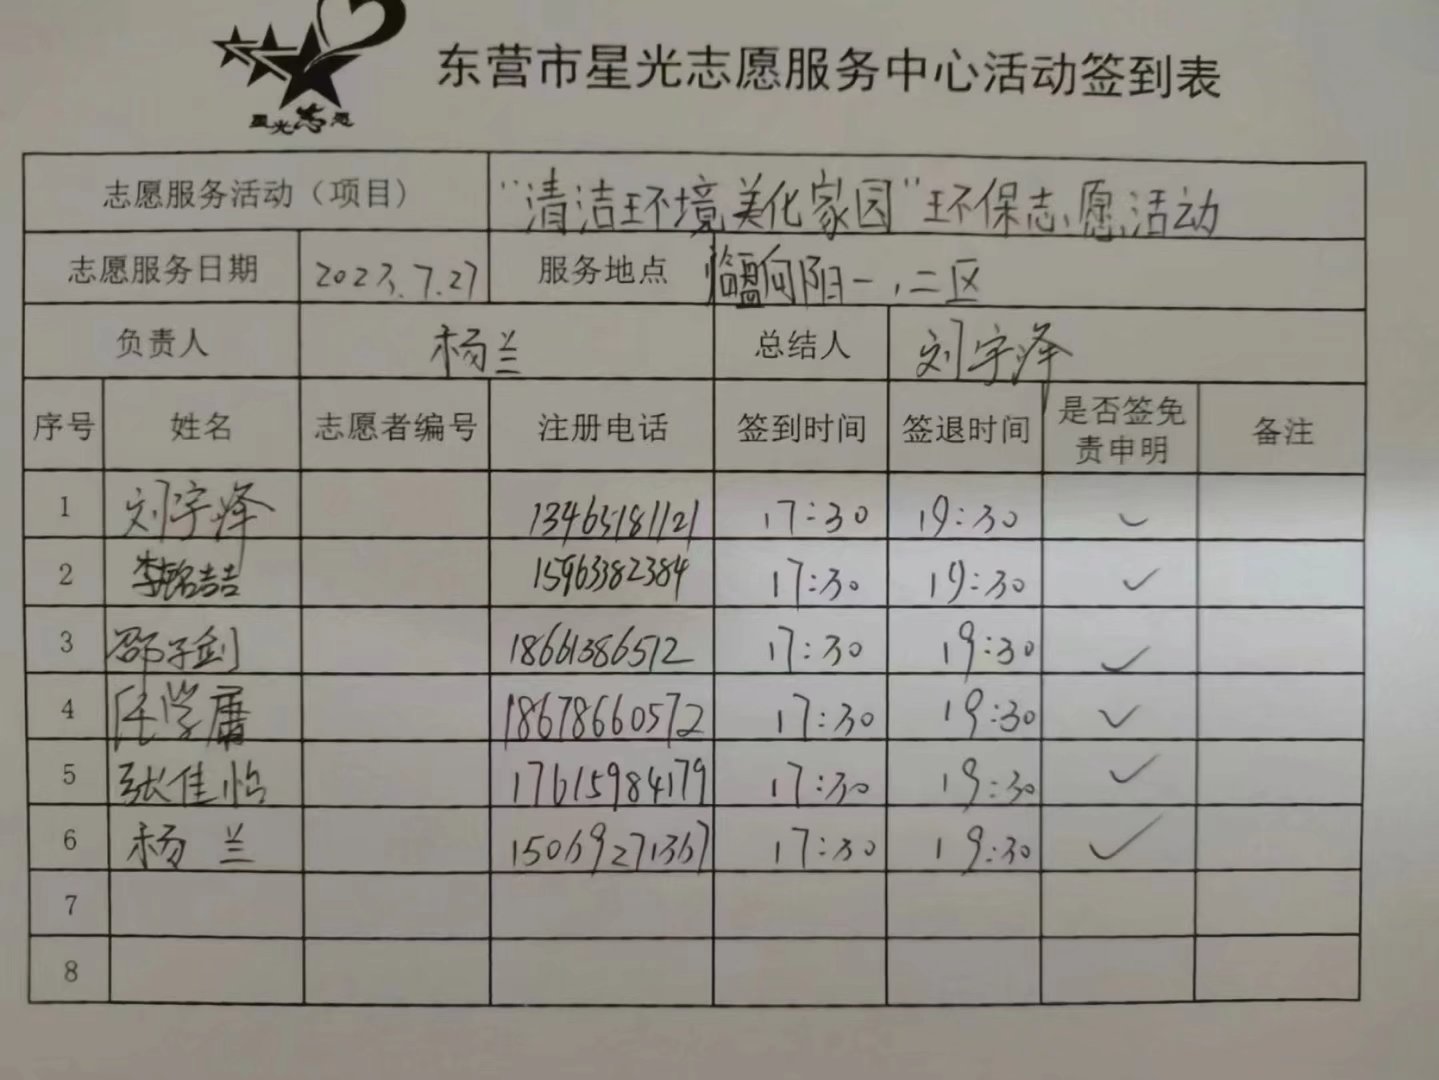 星光志愿
东营市星光志愿服务中心活动签到表
志愿服务活动（项目） “清洁环境美化家园”环保志愿活动
志愿服务日期 2023.7.27 服务地点 临盘向阳一,二区
负责人 杨兰 总结人 刘宇泽
序号 姓名 志愿者编号 注册电话 签到时间 签退时间 是否签免责申明 备注
1 刘宇泽 13465181121 17:30 19:30 ✓
2 李铭喆 15963382384 17:30 19:30 ✓
3 邵子剑 18661386572 17:30 19:30 ✓
4 任学庸 18678660572 17:30 19:30 ✓
5 张佳怡 17615984179 17:30 19:30 ✓
6 杨兰 15069271367 17:30 19:30 ✓
7
8